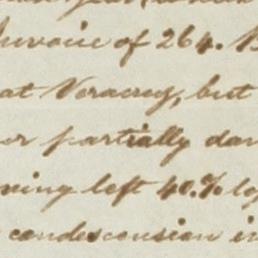 Invoice of 264. B
at Veracruz, but
or partially dam
ving left 40.% lo
condescension in